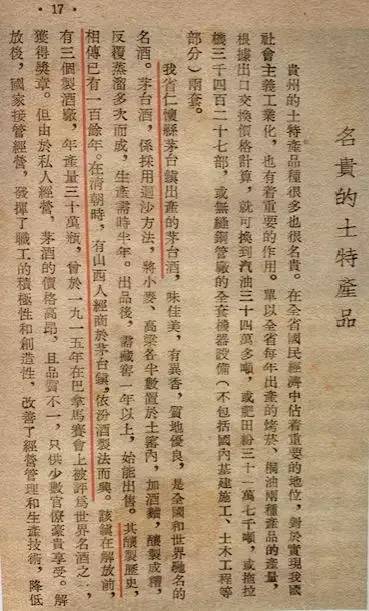 ·17·
名貴的土特產品
貴州的土特產品種很多也很名貴。在全省國民經濟中佔着重要的地位，對於實現我國
社會主義工業化，也有着重要的作用。單以全省每年出產的烤菸、桐油兩種產品的產量，
根據出口交換價格計算，就可換到汽油三十四萬多噸，或肥田粉三十一萬七千噸，或拖拉
機三千四百二十七部，或無縫鋼管廠的全套機器設備（不包括國內基建施工、土木工程等
部分）兩套。
我省仁懷縣茅台鎮出產的茅台酒，味佳美，有異香，質地優良，是全國和世界馳名的
名酒。茅台酒，係採用迴沙方法，將小麥、高粱各半數置於土窖內，加酒麯，釀製成糟，
反覆蒸溜多次而成，生產需時半年。出品後，需藏窖一年以上，始能出售。其釀製歷史，
相傳已有一百餘年。在清朝時，有山西人經商於茅台鎮，依汾酒製法而興。該鎮在解放前，
有三個製酒廠，年產量三十萬瓶，曾於一九一五年在巴拿馬賽會上被評爲世界名酒之一，
獲得獎章。但由於私人經營，茅酒的價格高昂，且品質不一，只供少數官僚豪貴享受。解
放後，國家接管經營，發揮了職工的積極性和創造性，改善了經營管理和生產技術，降低